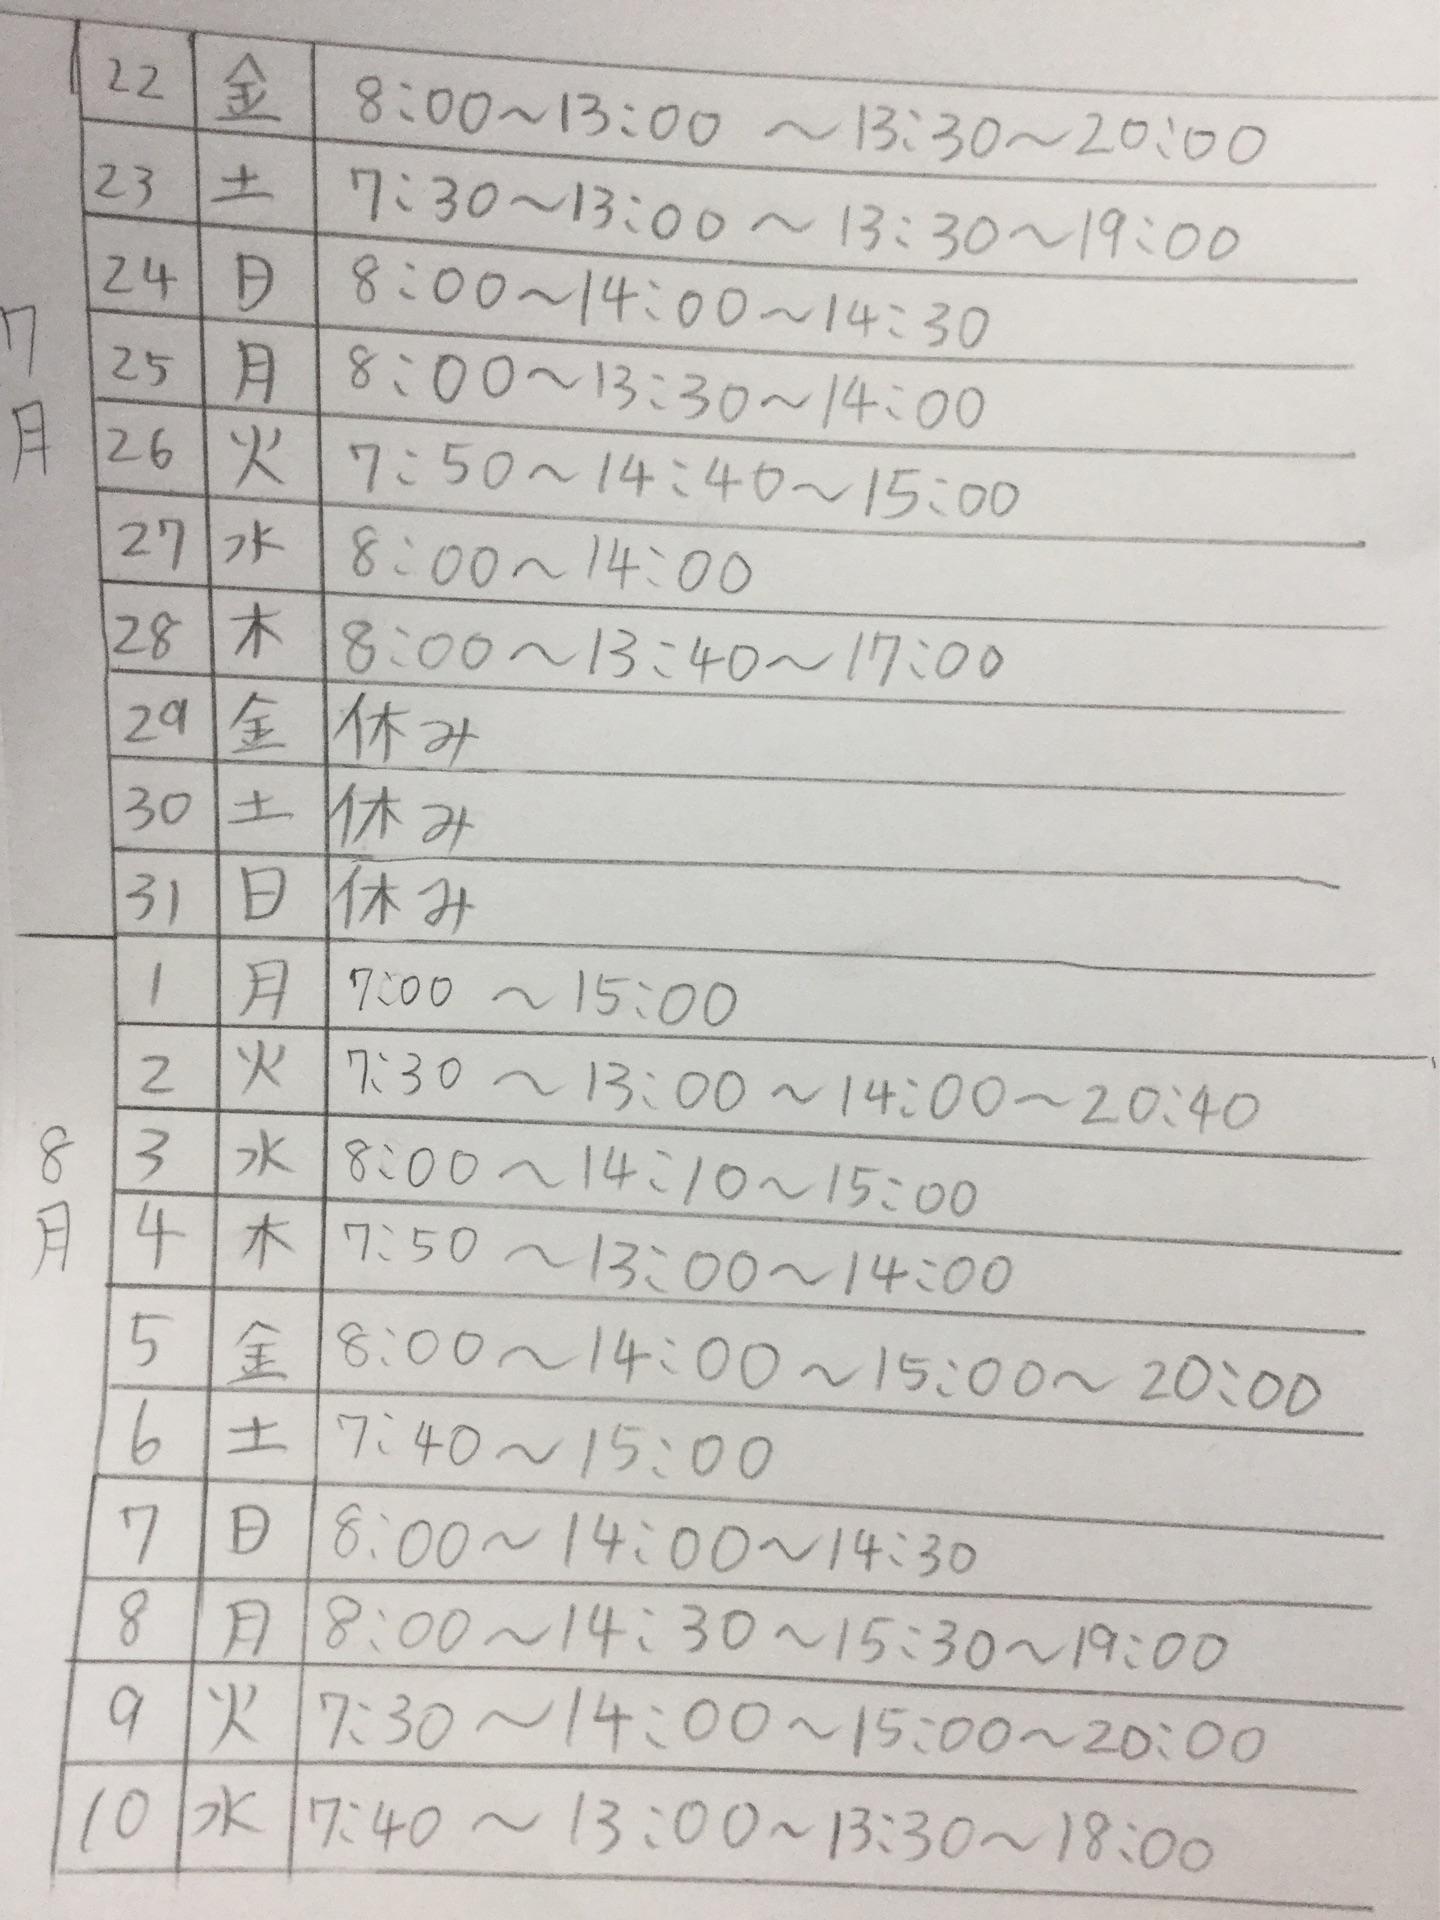 7月
22 金 8:00~13:00 ~13:30~20:00
23 土 7:30~13:00~13:30~19:00
24 日 8:00~14:00~14:30
25 月 8:00~13:30~14:00
26 火 7:50~14:40~15:00
27 水 8:00~14:00
28 木 8:00~13:40~17:00
29 金 休み
30 土 休み
31 日 休み
8月
1 月 7:00 ~15:00
2 火 7:30 ~13:00~14:00~20:40
3 水 8:00 ~14:10~15:00
4 木 7:50 ~13:00~14:00
5 金 8:00~14:00~15:00~20:00
6 土 7:40~15:00
7 日 8:00~14:00~14:30
8 月 8:00~14:30~15:30~19:00
9 火 7:30~14:00~15:00~20:00
10 水 7:40 ~13:00~13:30~18:00